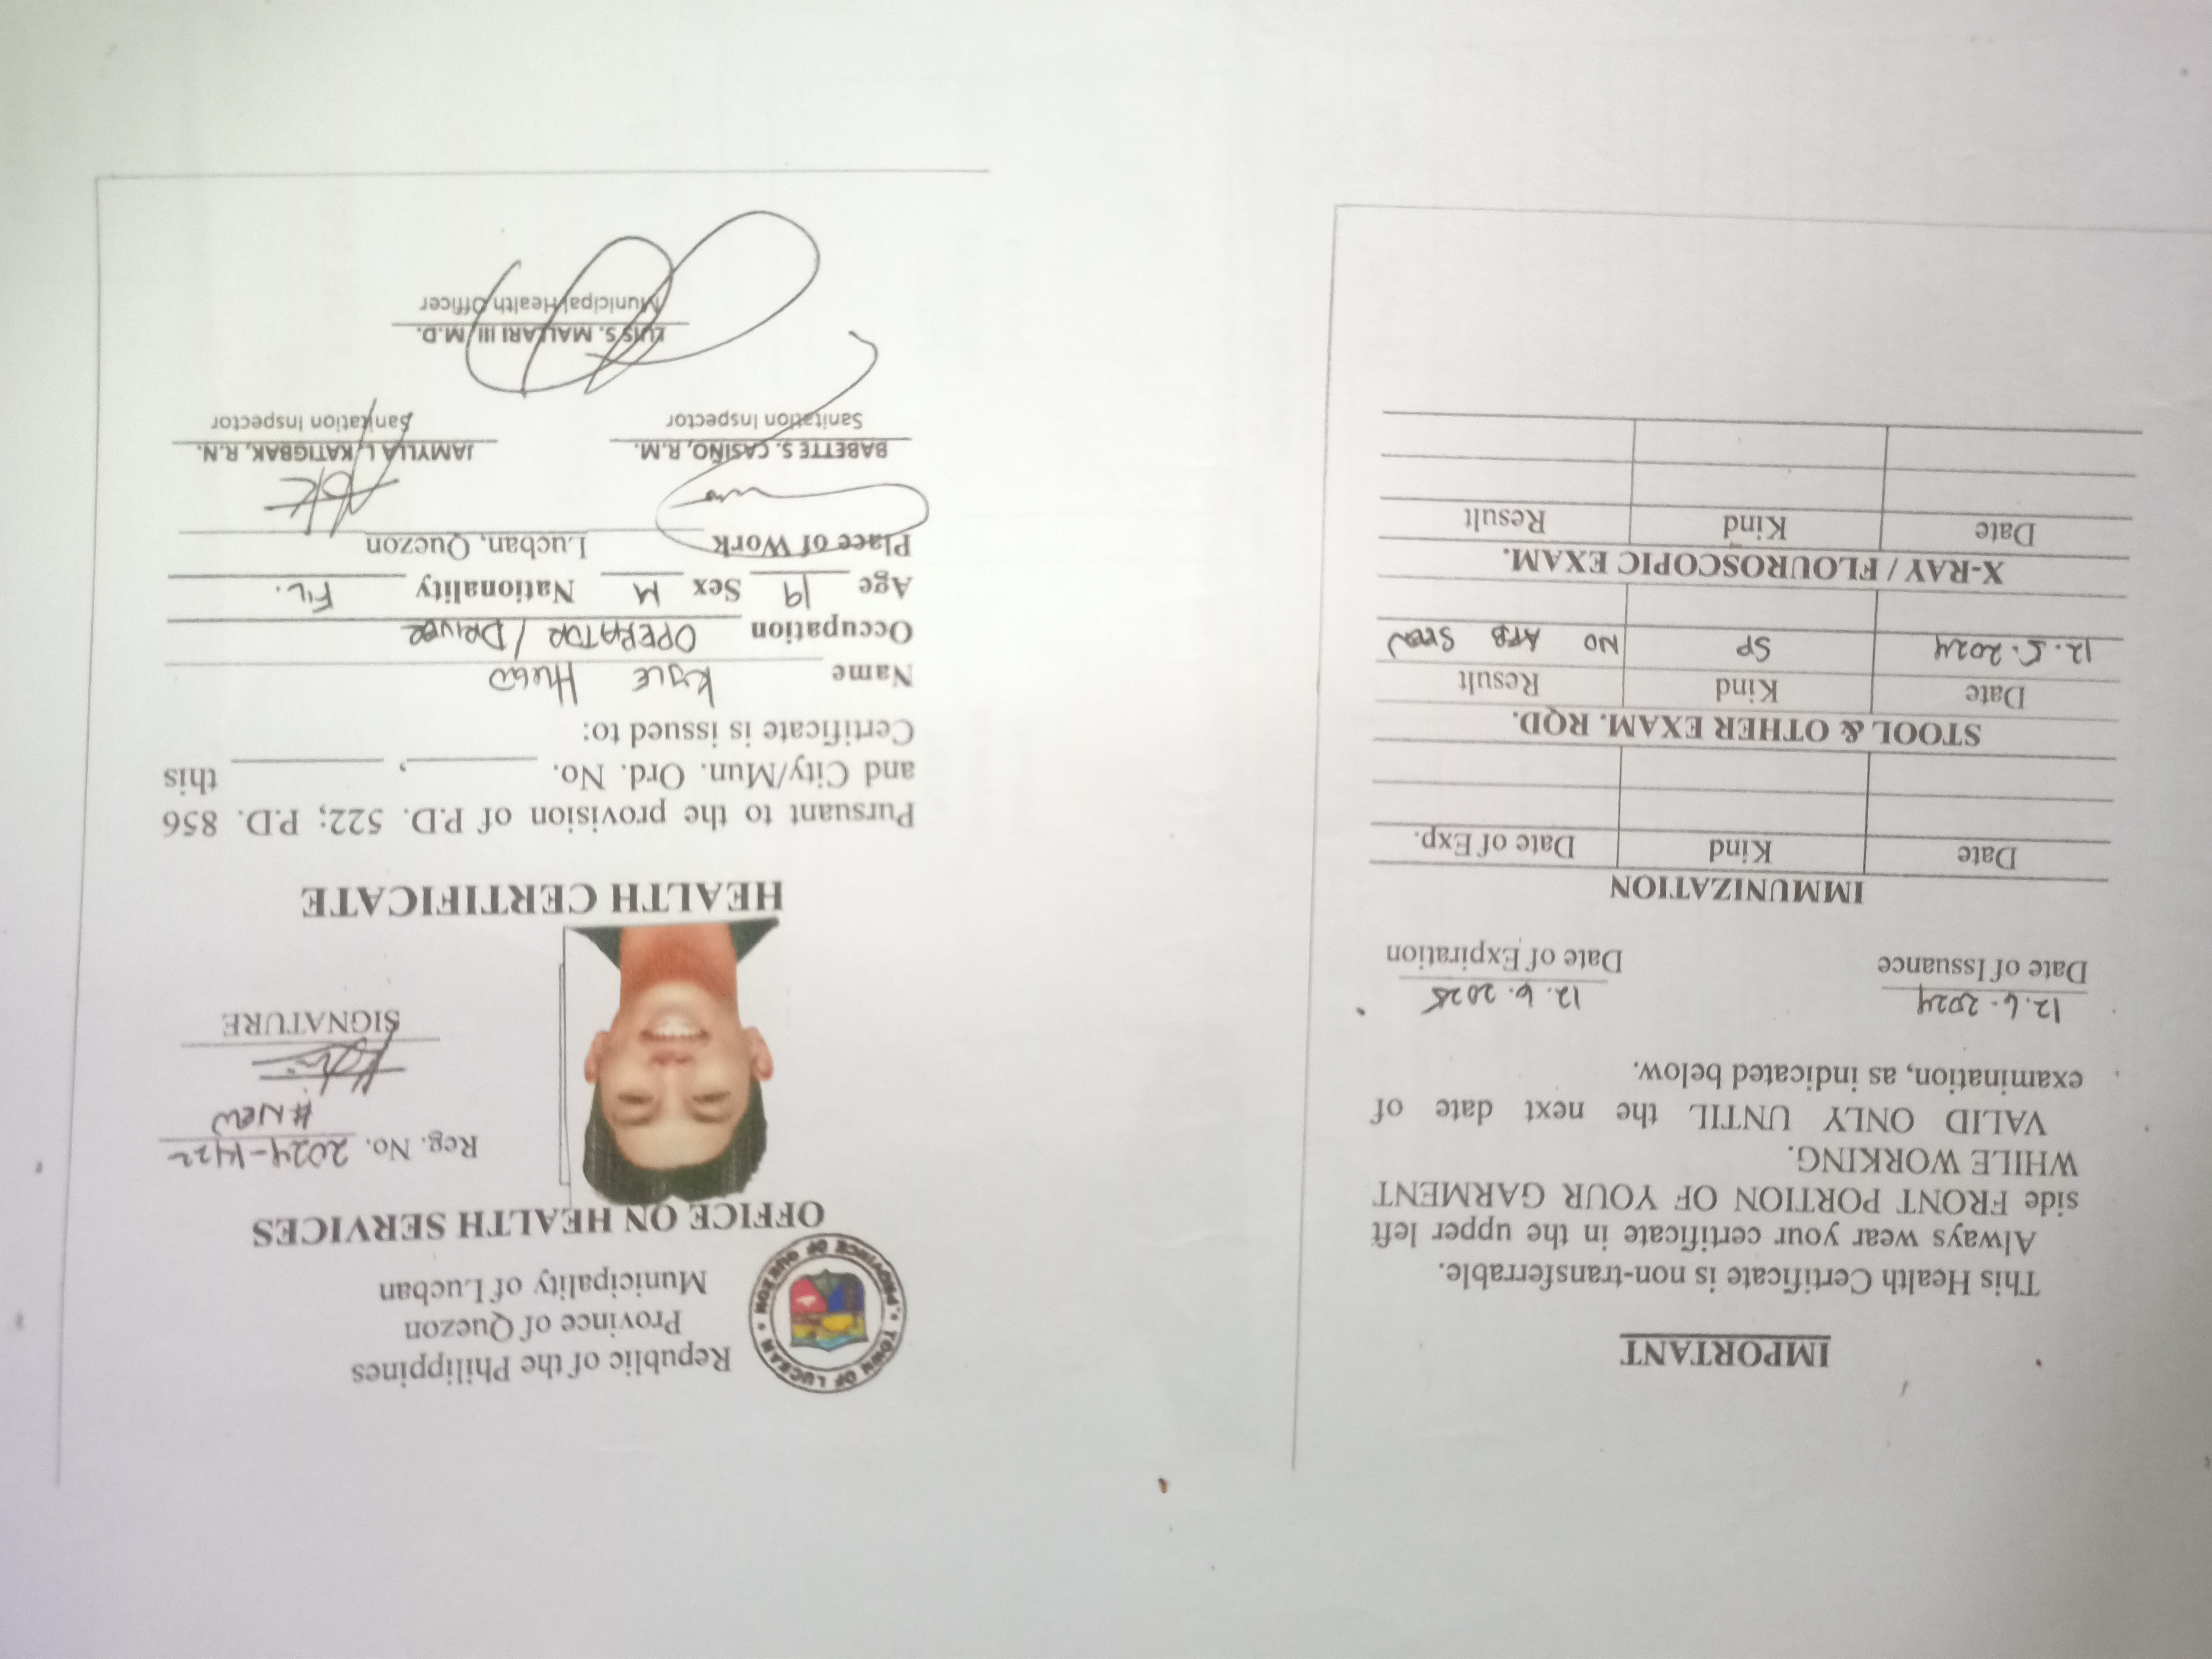 IMPORTANT
This Health Certificate is non-transferrable.
Always wear your certificate in the upper left
side FRONT PORTION OF YOUR GARMENT
WHILE WORKING.
VALID ONLY UNTIL the next date of
examination, as indicated below.
12.6.2024 12.6.2025
Date of Issuance Date of Expiration
IMMUNIZATION
Date Kind Date of Exp.
STOOL & OTHER EXAM. RQD.
Date Kind Result
12.5.2024 SP NO AFB SEEN
X-RAY / FLOUROSCOPIC EXAM.
Date Kind Result
TOWN OF LUCBAN
PROVINCE OF QUEZON
Republic of the Philippines
Province of Quezon
Municipality of Lucban
OFFICE ON HEALTH SERVICES
Reg. No. 2024-1422
#NEW
SIGNATURE
HEALTH CERTIFICATE
Pursuant to the provision of P.D. 522; P.D. 856
and City/Mun. Ord. No. ________, __________ this
Certificate is issued to:
Name KYLE HUGO
Occupation OPERATOR / DRIVER
Age 19 Sex M Nationality FIL.
Place of Work Lucban, Quezon
BABETTE S. CASIÑO, R.M. JAMYLLA L. KATIGBAK, R.N.
Sanitation Inspector Sanitation Inspector
LUIS S. MALLARI III, M.D.
Municipal Health Officer